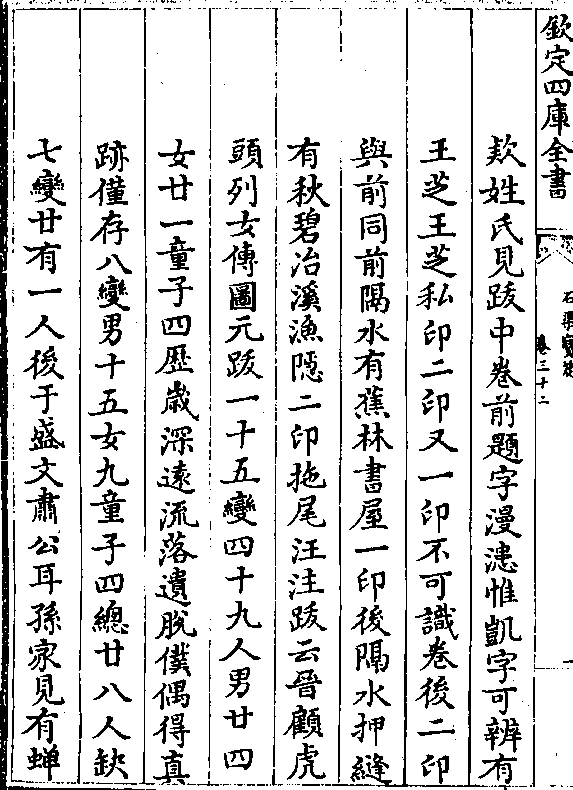 欽定四庫全書
石渠寳笈
卷三十二
一
欵姓氏見跋中卷前題字漫漶惟凱字可辨有
王芝王芝私印二印又一印不可識卷後二印
與前同前隔水有蕉林書屋一印後隔水押縫
有秋碧冶溪漁隱二印拖尾汪注跋云晉顧虎
頭列女傳圖元跋一十五變四十九人男廿四
女廿一童子四歴歲深遠流落遺脫僕偶得真
跡僅存八變男十五女九童子四總廿八人缺
七變廿有一人後于盛文肅公耳孫家見有蟬